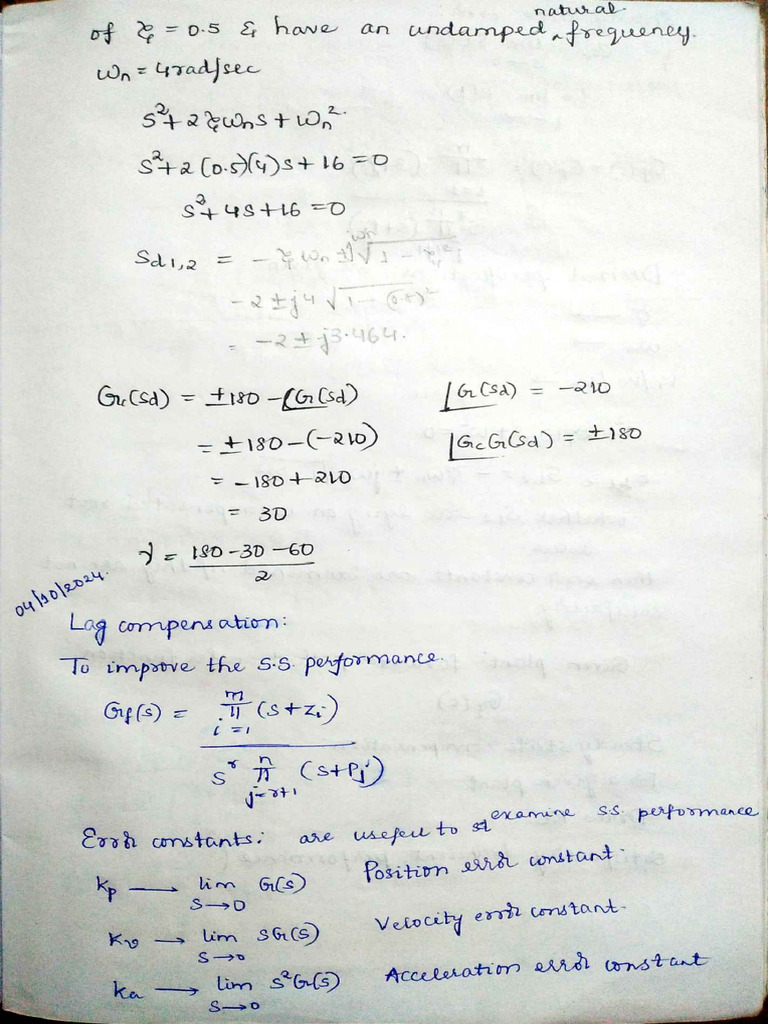 of ξ = 0.5 & have an undamped natural frequency.
ωn = 4rad/sec
s² + 2ξωns + ωn².
s² + 2(0.5)(4)s + 16 = 0
s² + 4s + 16 = 0
Sd1,2 = -ξωn ± jωn√1-ξ²
-2 ± j4 √1-(0.5)²
= -2 ± j3.464.
Gc(sd) = ±180 - ∠G(sd)    ∠G(sd) = -210
= ±180 - (-210)    ∠GcG(sd) = ±180
= -180 + 210
= 30
γ = 180-30-60 / 2
04/10/2024.
Lag compensation:
To improve the S.S. performance.
Gf(s) = m π i=1 (s+zi) / s^r n π j=r+1 (s+Pj)
Error constants: are useful to examine s.s. performance
kp → lim s→0 G(s)    Position error constant.
kv → lim s→0 sG(s)    Velocity error constant.
ka → lim s→0 s²G(s)    Acceleration error constant